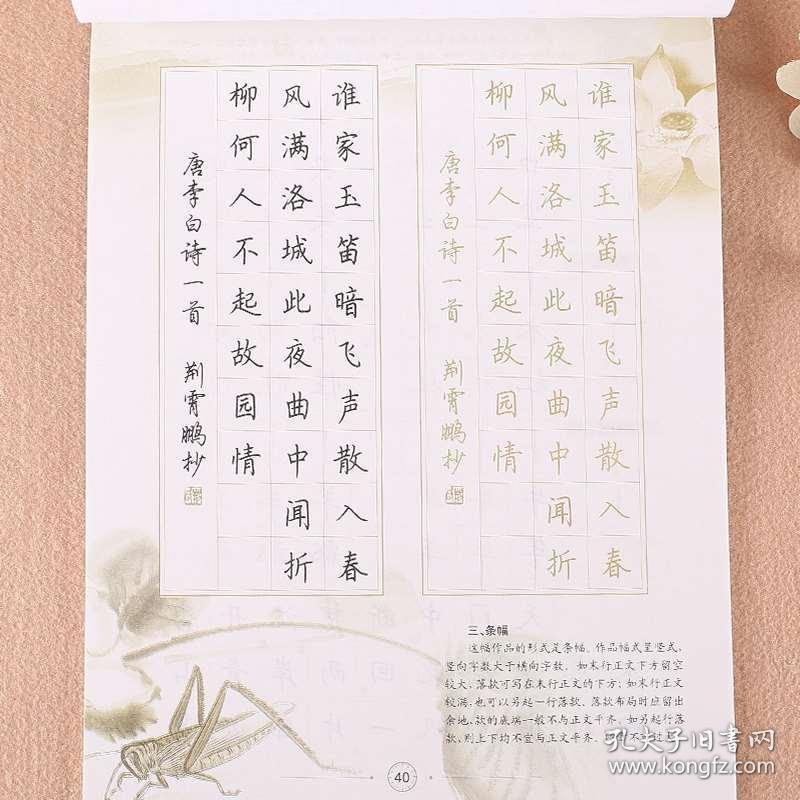 谁家玉笛暗飞声散入春
风满洛城此夜曲中闻折
柳何人不起故园情
唐李白诗一首 荆霄鹏抄
谁家玉笛暗飞声散入春
风满洛城此夜曲中闻折
柳何人不起故园情
唐李白诗一首 荆霄鹏抄
三、条幅
这幅作品的形式是条幅。作品幅式呈竖式,
竖向字数大于横向字数。如末行正文下方留空
较大,落款可写在末行正文的下方;如末行正文
较满,也可以另起一行落款。落款布局时应留出
余地,款的底端一般不与正文平齐。如另起行落
款,则上下均不宜与正文平齐。
40
孔夫子旧书网
www.kongfz.com